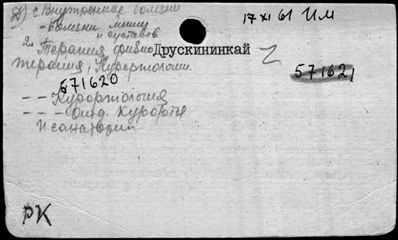 1. Внутренние болезни
17 XI 61 Им
- Болезни мышц
и суставов
2. Терапия физио
Друскининкай
терапия, Курортология.
571620
571621
-- Курортология
--- Отд. Курорты
и санатории
РК